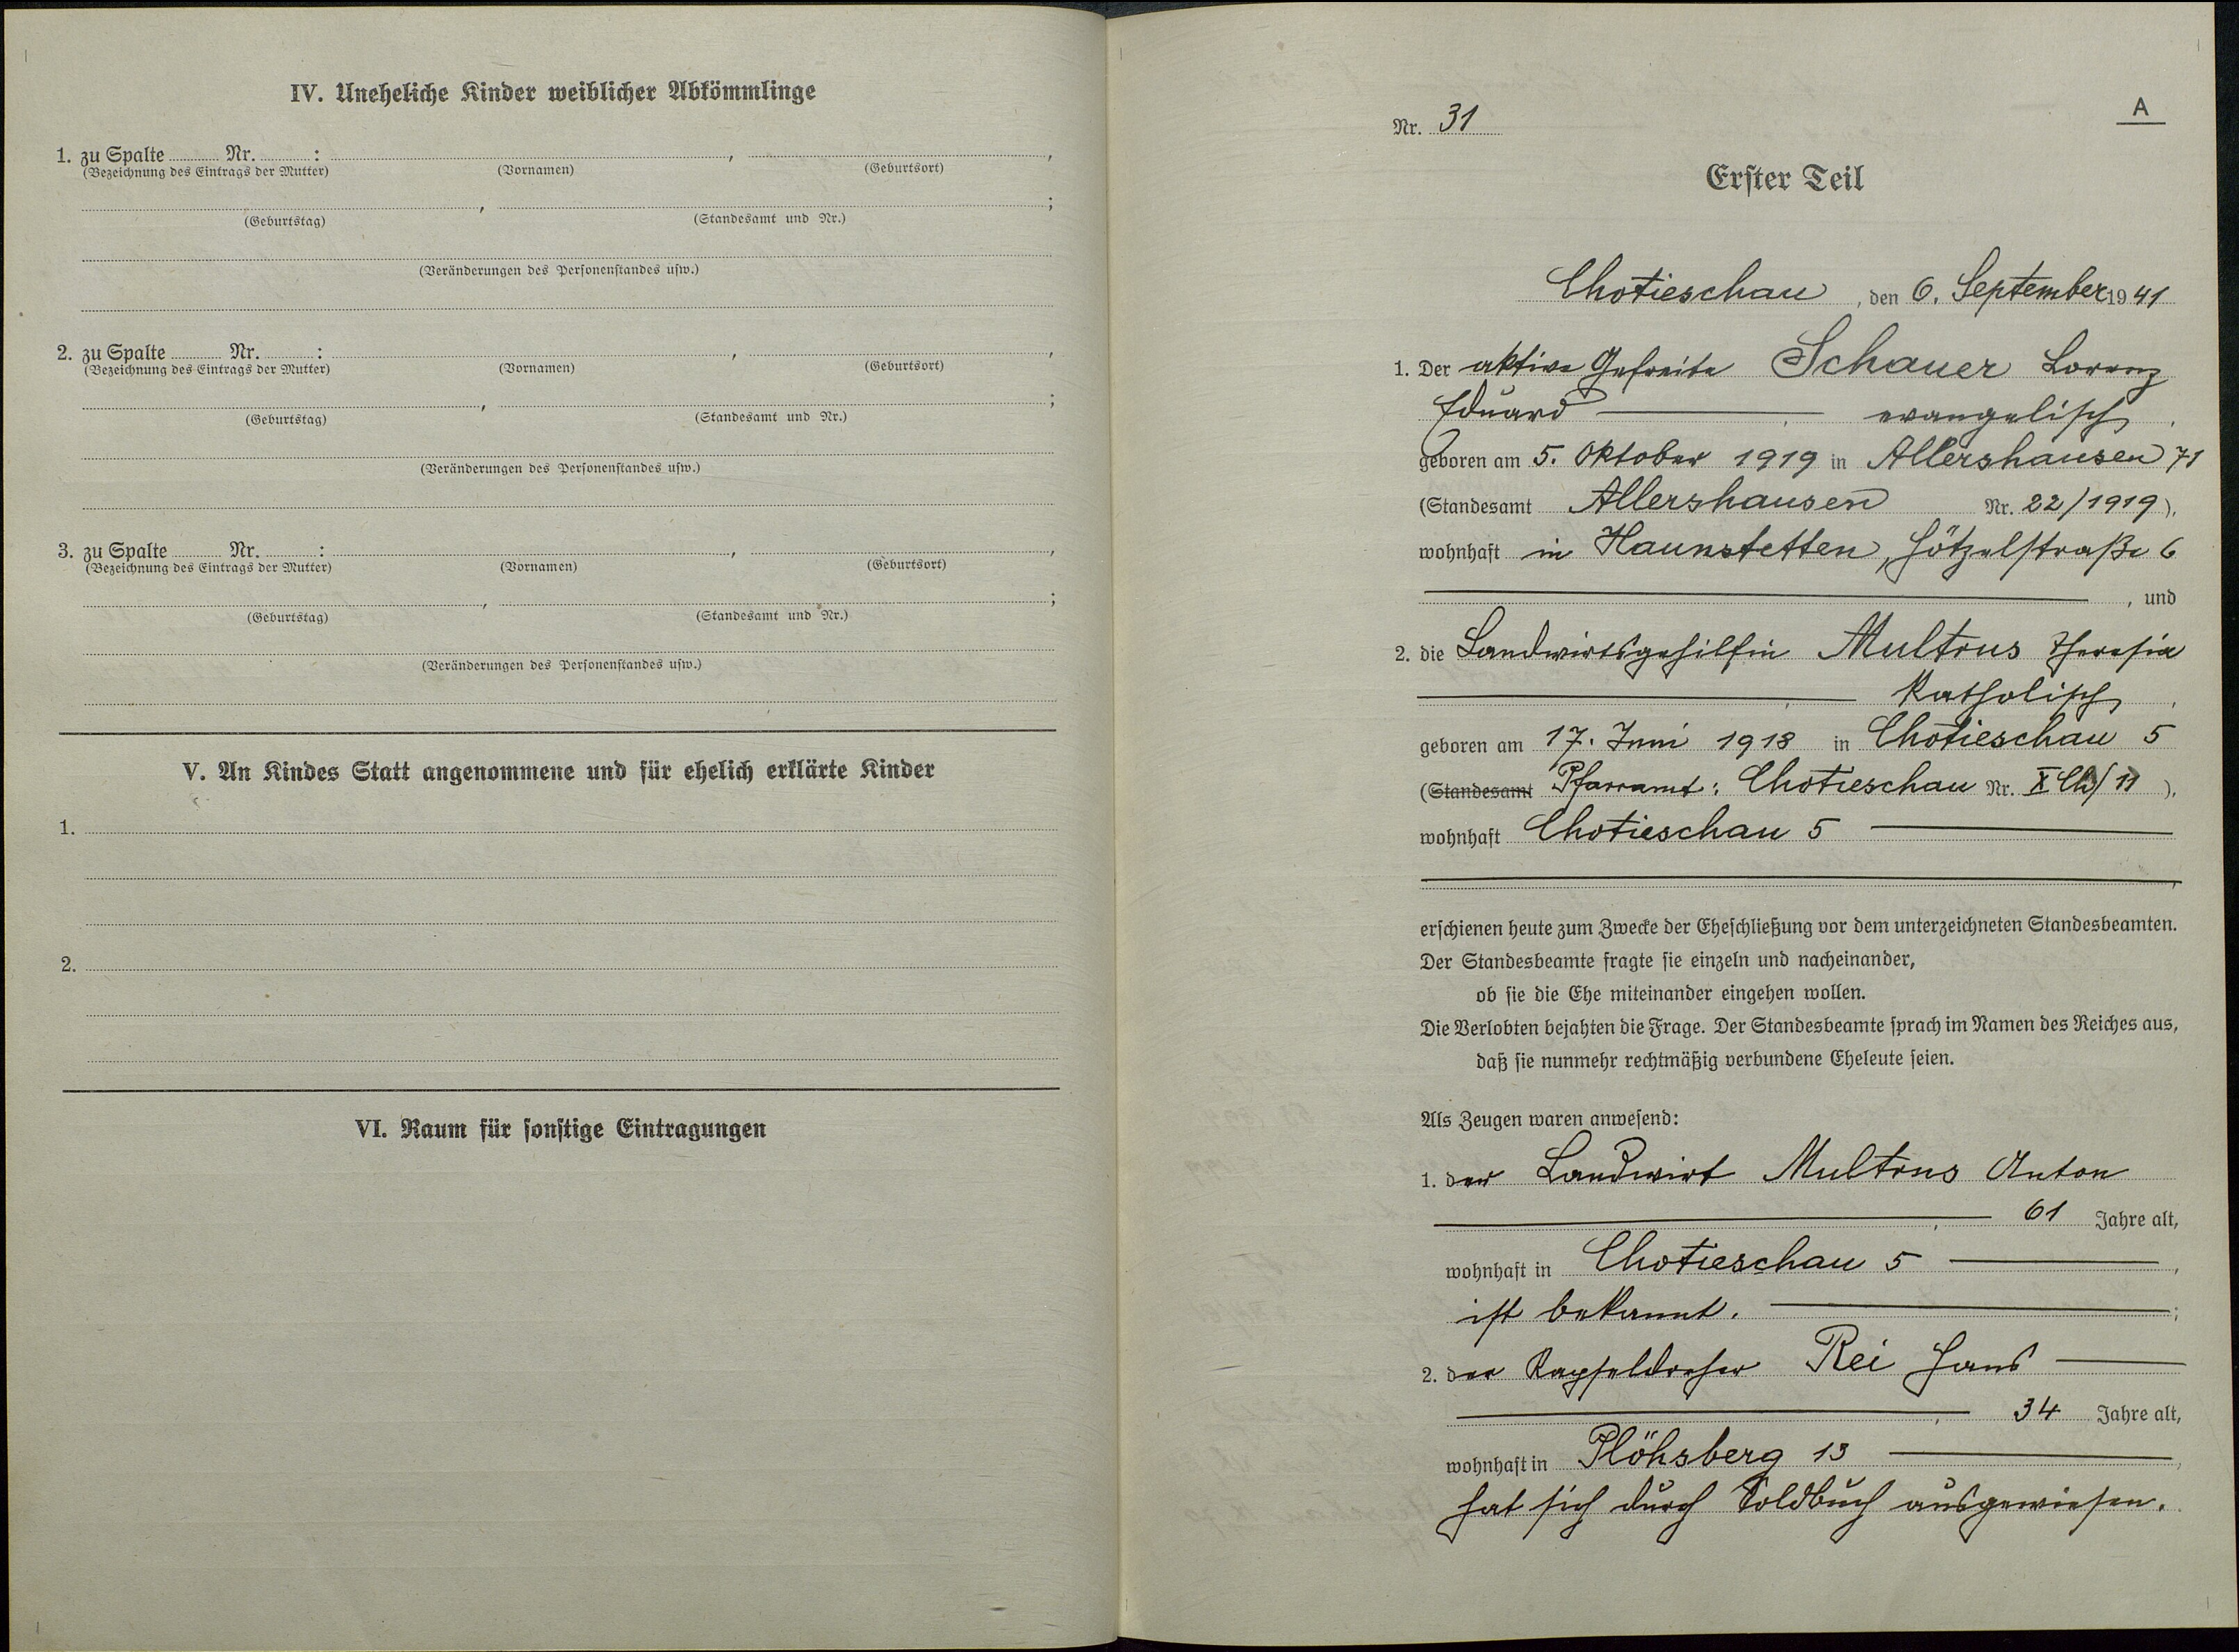 IV. Uneheliche Kinder weiblicher Abkömmlinge
1. zu Spalte Nr. : , ,
(Bezeichnung des Eintrags der Mutter) (Vornamen) (Geburtsort)
, ;
(Geburtstag) (Standesamt und Nr.)
(Veränderungen des Personenstandes usw.)
2. zu Spalte Nr. : , ,
(Bezeichnung des Eintrags der Mutter) (Vornamen) (Geburtsort)
, ;
(Geburtstag) (Standesamt und Nr.)
(Veränderungen des Personenstandes usw.)
3. zu Spalte Nr. : , ,
(Bezeichnung des Eintrags der Mutter) (Vornamen) (Geburtsort)
, ;
(Geburtstag) (Standesamt und Nr.)
(Veränderungen des Personenstandes usw.)
V. An Kindes Statt angenommene und für ehelich erklärte Kinder
1.
2.
VI. Raum für sonstige Eintragungen
A
Nr. 31
Erster Teil
Chotieschau, den 6. September 1941
1. Der aktive Gefreite Schauer Lorenz
Eduard, evangelisch,
geboren am 5. Oktober 1919 in Allershausen 71
(Standesamt Allershausen Nr. 22/1919),
wohnhaft in Haunstetten, Hötzelstraße 6
, und
2. die Landwirtsgehilfin Multrus Theresia
, katholisch,
geboren am 17. Juni 1918 in Chotieschau 5
(Standesamt Pfarramt: Chotieschau Nr. X Ch/11),
wohnhaft Chotieschau 5
,
erschienen heute zum Zwecke der Eheschließung vor dem unterzeichneten Standesbeamten.
Der Standesbeamte fragte sie einzeln und nacheinander,
ob sie die Ehe miteinander eingehen wollen.
Die Verlobten bejahten die Frage. Der Standesbeamte sprach im Namen des Reiches aus,
daß sie nunmehr rechtmäßig verbundene Eheleute seien.
Als Zeugen waren anwesend:
1. der Landwirt Multrus Anton
, 61 Jahre alt,
wohnhaft in Chotieschau 5,
ist bekannt. ;
2. der Kapseldreher Rei Hans
, 34 Jahre alt,
wohnhaft in Plöhsberg 13,
hat sich durch Soldbuch ausgewiesen.